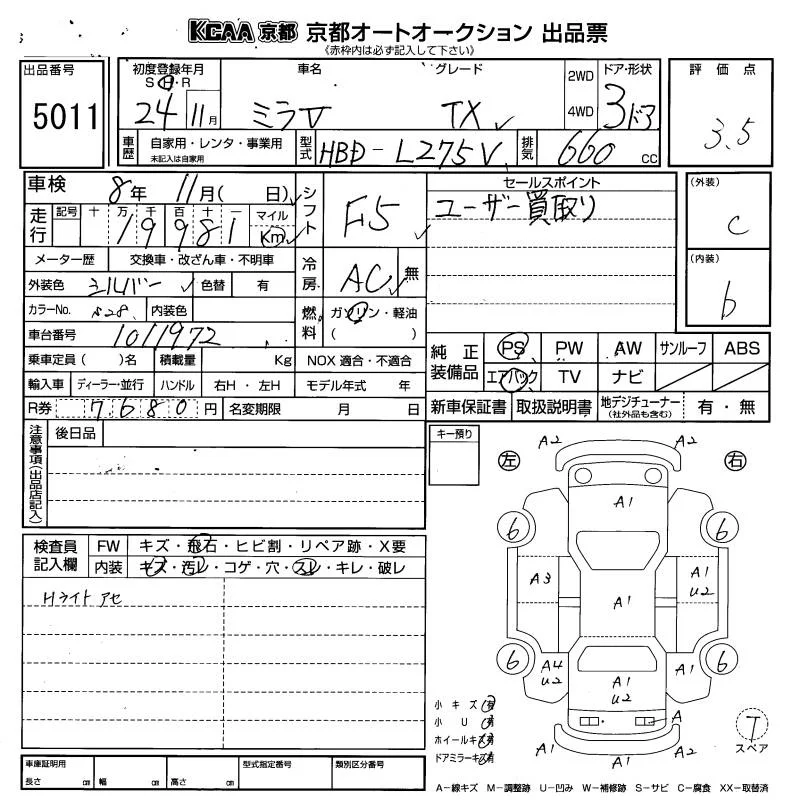 KCAA 京都 京都オートオークション 出品票
《赤枠内は必ず記入して下さい》
出品番号
5011
初度登録年月
S・H・R
24 11月
車名
ミラV
グレード
TX
2WD
4WD
ドア・形状
3ドア
評価点
3.5
車歴
自家用・レンタ・事業用
未記入は自家用
型式
HBD-L275V
排気
660 CC
車検 8年 11月( 日)
シフト
F5
セールスポイント
ユーザー買取り
(外装)
C
(内装)
b
走行
記号 十 万 千 百 十 一
19981
マイル
Km
メーター歴 交換車・改ざん車・不明車
冷房
AC
無
外装色 シルバー 色替 有
カラーNo. S28 内装色
燃料
ガソリン・軽油
( )
車台番号 1011972
乗車定員( )名 積載量 Kg NOX 適合・不適合
純正装備品
PS PW AW サンルーフ ABS
エアバック TV ナビ
輸入車 ディーラー・並行 ハンドル 右H・左H モデル年式 年
R券 7680円 名変期限 月 日
新車保証書 取扱説明書 地デジチューナー
(社外品も含む)
有・無
注意事項(出品店記入)
後日品
キー預り
左
右
A2
A2
A1
6
6
A3
A1
A1
U2
6
6
A4
U2
A1
U2
A1
A
A1
A1
検査員記入欄
FW キズ・飛石・ヒビ割・リペア跡・X要
内装 キズ・汚レ・コゲ・穴・スレ・キレ・破レ
Hライト アセ
小キズ 有
小U 有
ホイールキズ 有
ドアミラーキズ 有
T
スペア
車庫証明用
長さ cm 幅 cm 高さ cm
型式指定番号
類別区分番号
A−線キズ M−調整跡 U−凹み W−補修跡 S−サビ C−腐食 XX−取替済